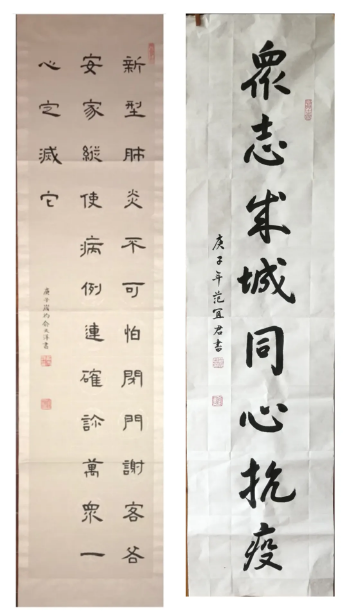 新型肺炎不可怕閉門謝客各
安家縱使病例連確診萬眾一
心定滅它
庚子書
眾志成城同心抗疫
庚子年范宜君書